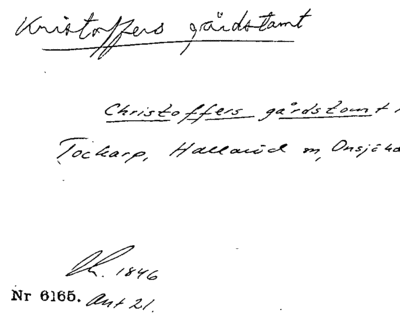 Kristoffers gårdstamt
Christoffers gårdstomt
Tockarp, Hallaröd
1846
Nr 6165. Ant 21.